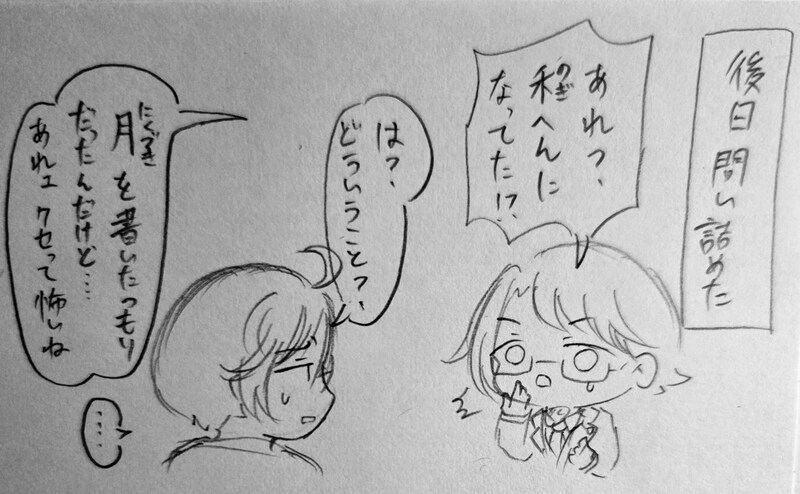 後日問い詰めた
あれっ、
禾へんに
のぎ
なってた!?
は?、
どういうこと?、
月を書いたつもり
にくづき
だったんだけど…
あれェ クセって怖いね
....